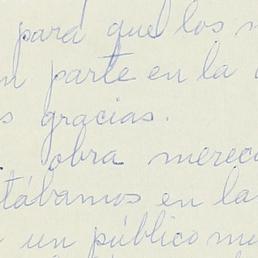 para que los
parte en la
gracias.
obra merec
tábamos en la
un público